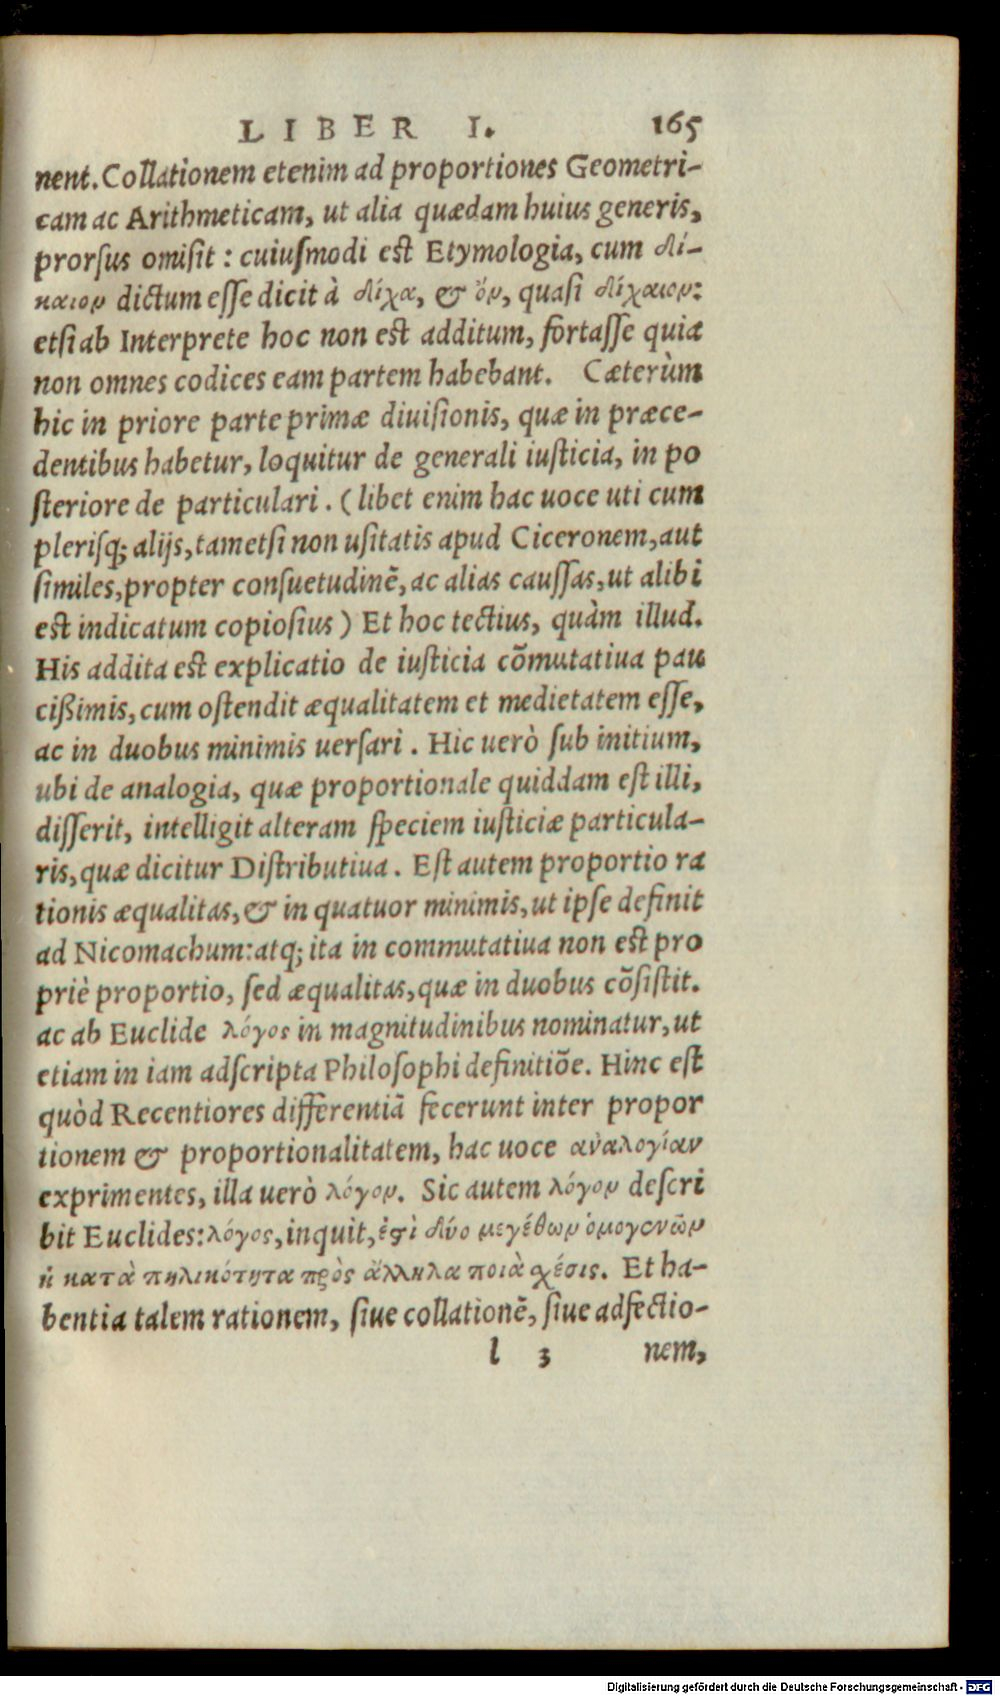 LIBER I. 165
nent. Collationem etenim ad proportiones Geometri-
cam ac Arithmeticam, ut alia quædam huius generis,
prorsus omisit: cuiusmodi est Etymologia, cum δί-
καιον dictum esse dicit à δίχα, & ὄν, quasi δίχαιον:
etsi ab Interprete hoc non est additum, fortasse quia
non omnes codices eam partem habebant. Cæterùm
hic in priore parte primæ diuisionis, quæ in præce-
dentibus habetur, loquitur de generali iusticia, in po
steriore de particulari. (libet enim hac uoce uti cum
plerisq; alijs, tametsi non usitatis apud Ciceronem, aut
similes, propter consuetudinē, ac alias caussas, ut alibi
est indicatum copiosius) Et hoc tectius, quàm illud.
His addita est explicatio de iusticia cōmutatiua pau
cißimis, cum ostendit æqualitatem et medietatem esse,
ac in duobus minimis uersari. Hic uerò sub initium,
ubi de analogia, quæ proportionale quiddam est illi,
disserit, intelligit alteram speciem iusticiæ particula-
ris, quæ dicitur Distributiua. Est autem proportio ra
tionis æqualitas, & in quatuor minimis, ut ipse definit
ad Nicomachum: atq; ita in commutatiua non est pro
priè proportio, sed æqualitas, quæ in duobus cōsistit.
ac ab Euclide λόγος in magnitudinibus nominatur, ut
etiam in iam adscripta Philosophi definitiōe. Hinc est
quòd Recentiores differentiā fecerunt inter propor
tionem & proportionalitatem, hac uoce ἀναλογίαν
exprimentes, illa uerò λόγον. Sic autem λόγον descri
bit Euclides: λόγος, inquit, ἐστὶ δύο μεγέθων ὁμογενῶν
ἡ κατὰ πηλικότητα πρὸς ἄλληλα ποιὰ σχέσις. Et ha-
bentia talem rationem, siue collationē, siue adfectio-
l 3 nem,
Digitalisierung gefördert durch die Deutsche Forschungsgemeinschaft - DFG